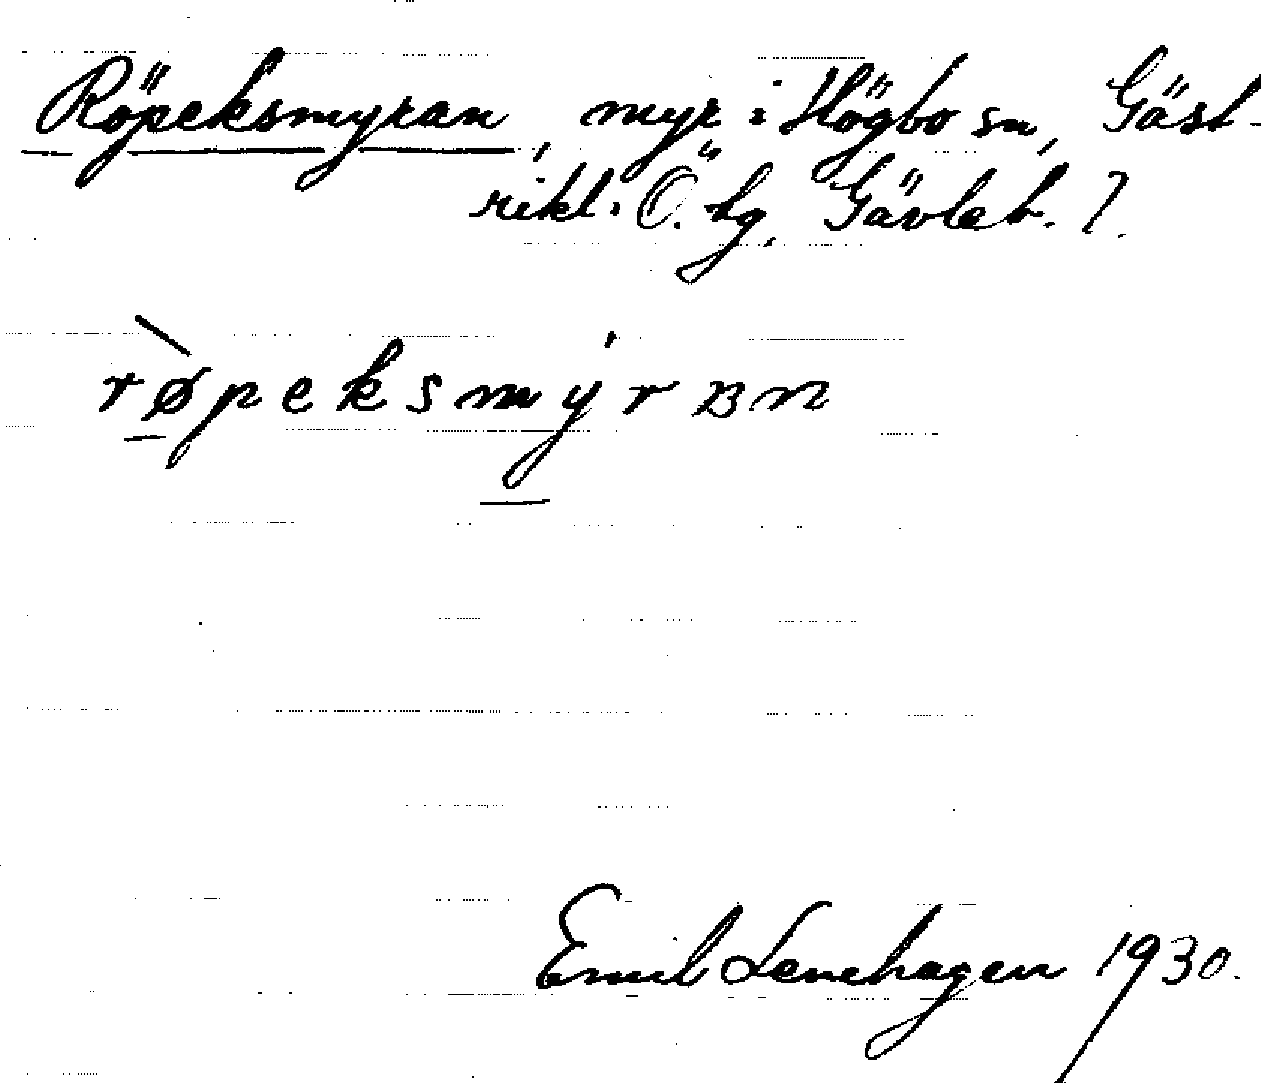 Röpeksmyran, myr i Högbo sn, Gäst-
rikl. Ö. hg, Gävleb. l.
rø̀peksmýrʙn
Emil Lenehagen 1930.